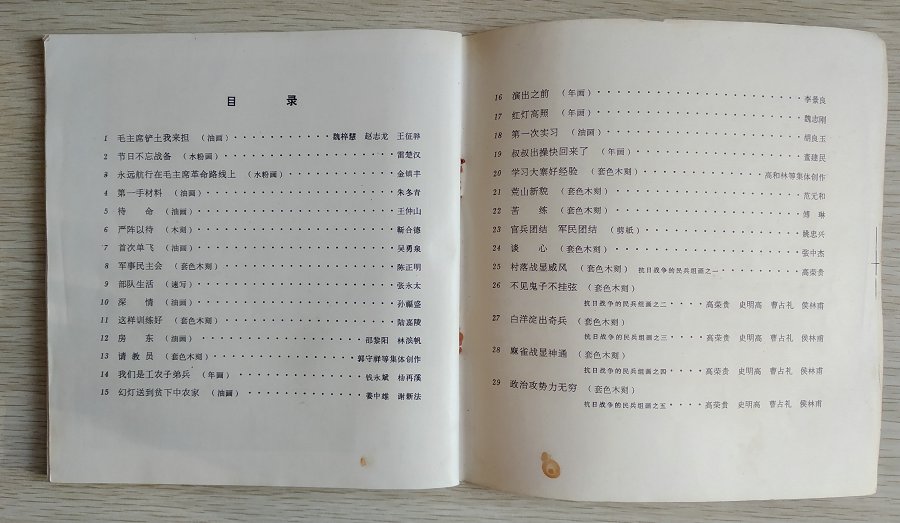 目 录
1 毛主席铲土我来担 (油画) 魏梓慧 赵志龙 王征骅
2 节日不忘战备 (水粉画) 雷楚汉
3 永远航行在毛主席革命路线上 (水粉画) 金镇丰
4 第一手材料 (油画) 朱冬青
5 待 命 (油画) 王仲山
6 严阵以待 (木刻) 靳合德
7 首次单飞 (油画) 吴勇泉
8 军事民主会 (套色木刻) 陈正明
9 部队生活 (速写) 张永太
10 深 情 (油画) 孙福盛
11 这样训练好 (套色木刻) 陆嘉陵
12 房 东 (油画) 邵黎阳 林滨帆
13 请 教 员 (套色木刻) 郭守祥等集体创作
14 我们是工农子弟兵 (年画) 钱永斌 杨再溪
15 幻灯送到贫下中农家 (油画) 娄中雄 谢新法
16 演出之前 (年画) 李景良
17 红灯高照 (年画) 魏志刚
18 第一次实习 (油画) 胡良玉
19 叔叔出操快回来了 (年画) 富建民
20 学习大寨好经验 (套色木刻) 高和林等集体创作
21 荒山新貌 (套色木刻) 范无和
22 苦 练 (套色木刻) 傅 琳
23 官兵团结 军民团结 (剪纸) 姚忠兴
24 谈 心 (套色木刻) 张中杰
25 村落战显威风 (套色木刻) 抗日战争的民兵组画之一 高荣贵
26 不见鬼子不挂弦 (套色木刻)
抗日战争的民兵组画之二 高荣贵 史明高 曹占礼 侯林甫
27 白洋淀出奇兵 (套色木刻)
抗日战争的民兵组画之三 高荣贵 史明高 曹占礼 侯林甫
28 麻雀战显神通 (套色木刻)
抗日战争的民兵组画之四 高荣贵 史明高 曹占礼 侯林甫
29 政治攻势力无穷 (套色木刻)
抗日战争的民兵组画之五 高荣贵 史明高 曹占礼 侯林甫